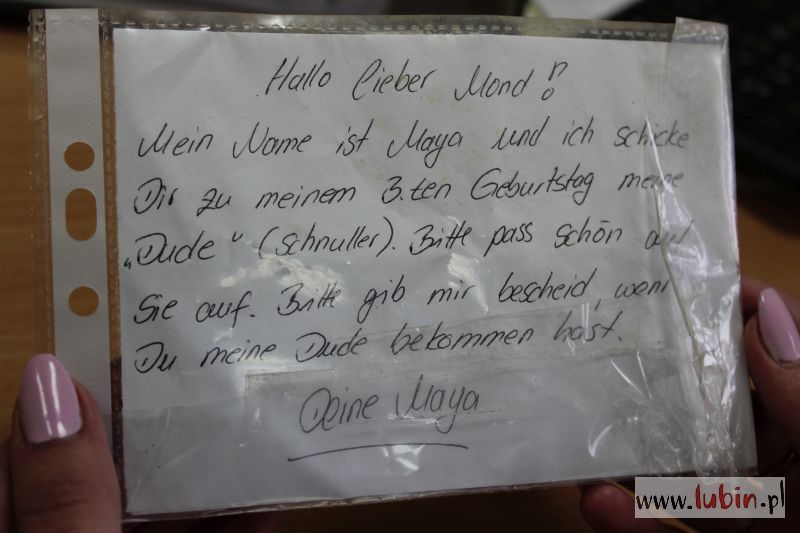 Hallo lieber Mond !
Mein Name ist Maya und ich schicke
Dir zu meinem 3.ten Geburtstag meine
„Dude“ (Schnuller). Bitte pass schön auf
Sie auf. Bitte gib mir bescheid, wenn
Du meine Dude bekommen hast.
Deine Maya
www.lubin.pl